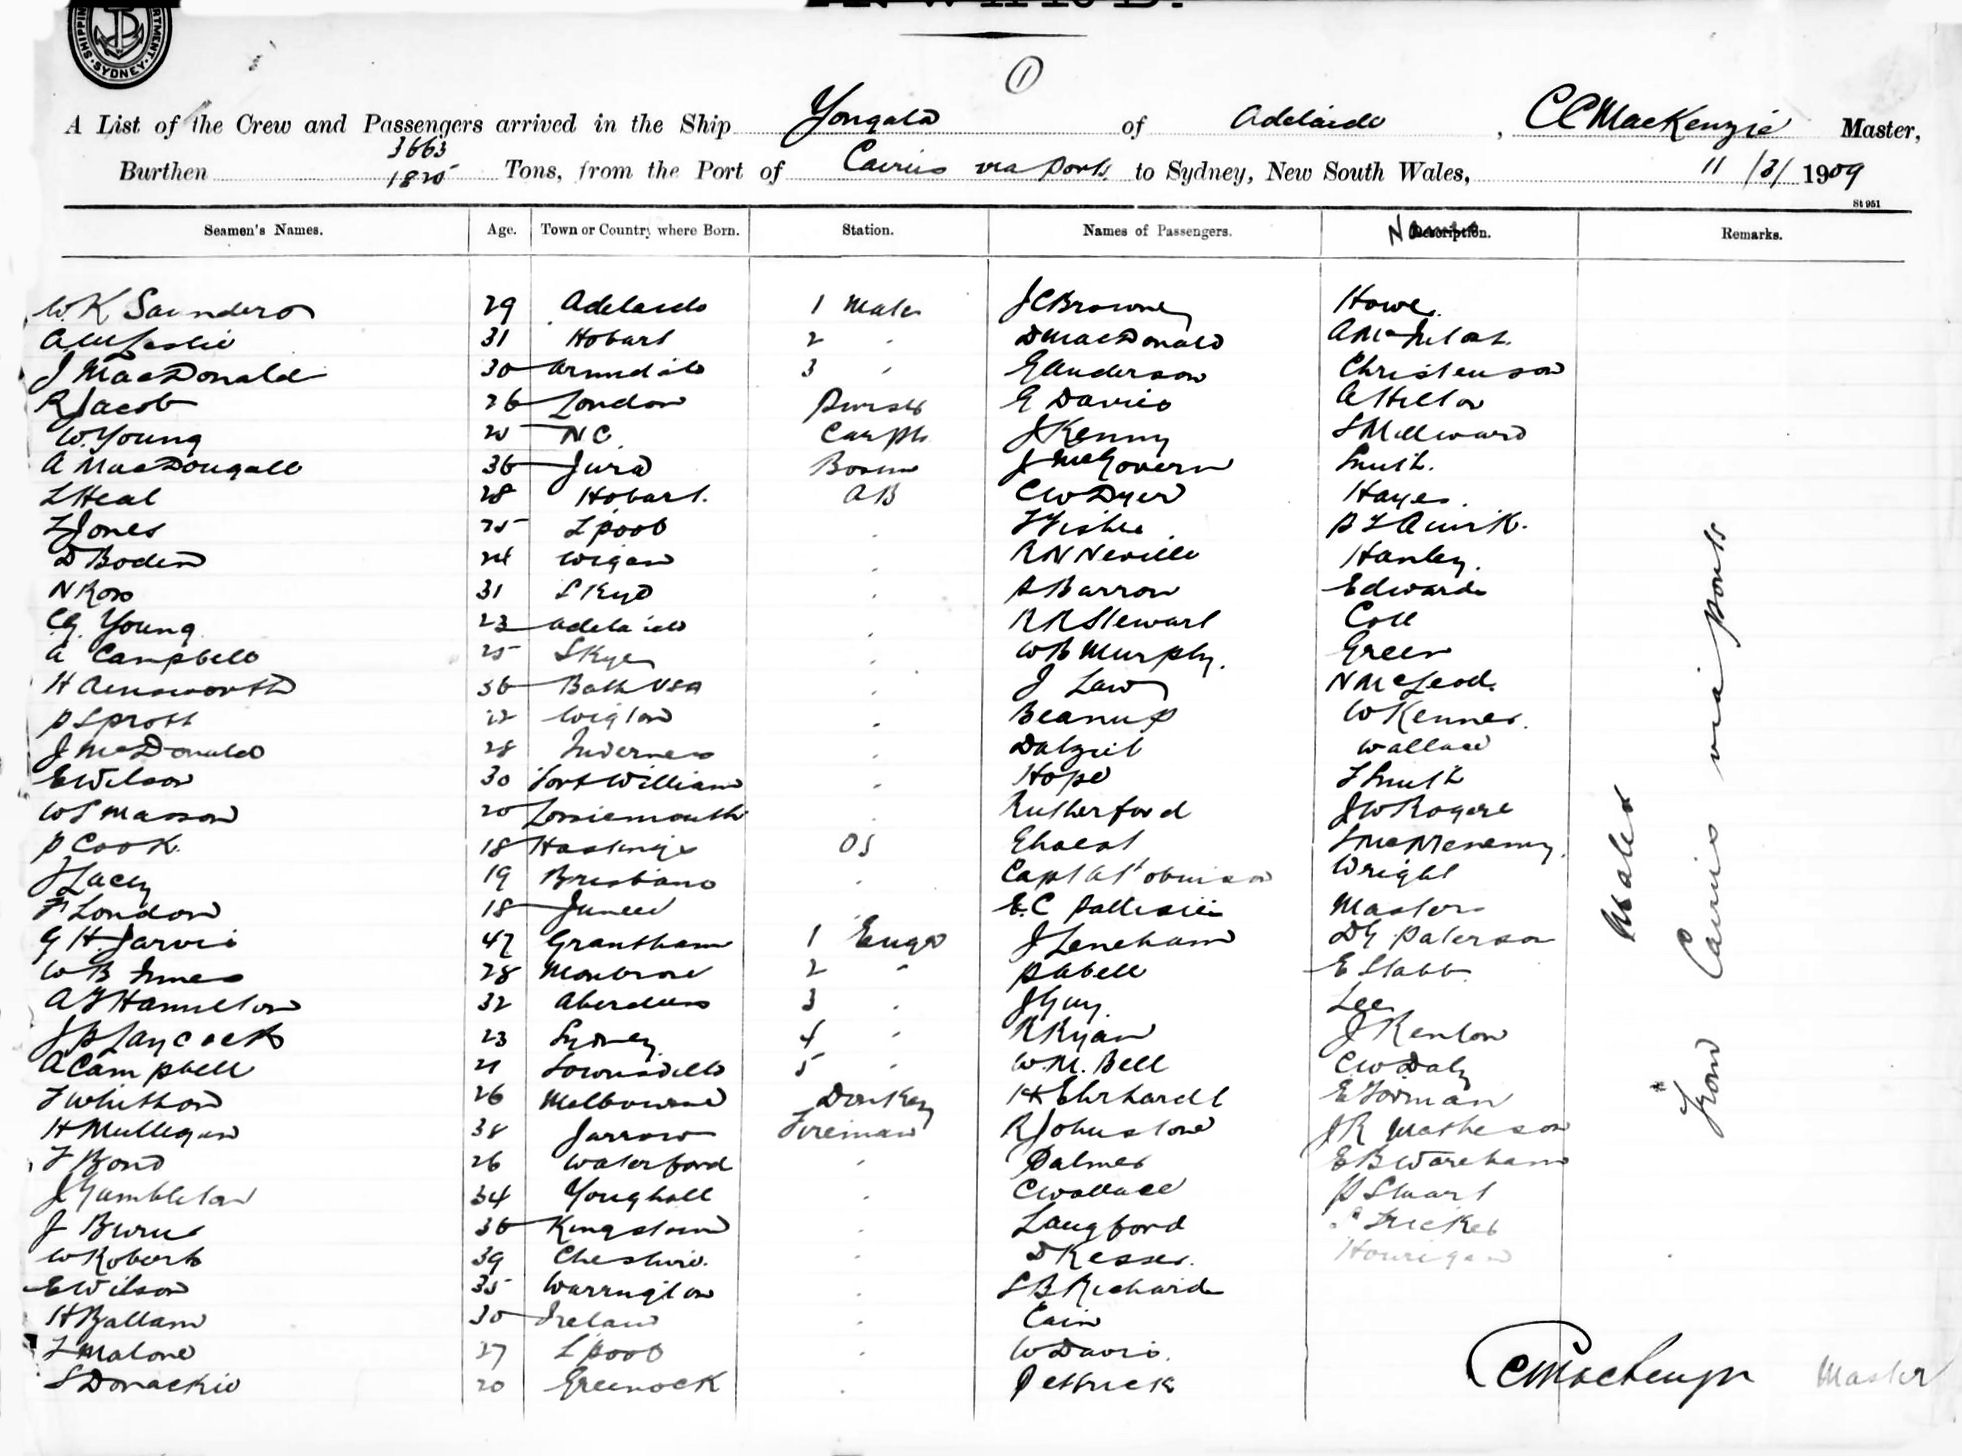 SHIPPING DEPARTMENT SYDNEY
1
A List of the Crew and Passengers arrived in the Ship Yongala of Adelaide, C C MacKenzie Master,
3663
Burthen 1825 Tons, from the Port of Cairns via Ports to Sydney, New South Wales, 11/3/1909
St 951
Seamen's Names. Age. Town or Country where Born. Station. Names of Passengers. Names Description. Remarks.
W. K Saunders 29 Adelaide 1 Mate J C Browne Howe.
A W Leslie 31 Hobart 2 " D MacDonald A McIntosh
J MacDonald 30 3 " G Anderson Christenson
R Jacob 26 London Purser G Davies A Hilton
W. Young 20 N C. Carptr J Kenny S Millward
A MacDougall 36 Jura Bosun J McGovern Smith.
L Heal 28 Hobart. AB C W Dyer Hayes.
F Jones 25 Lpool " P F Quirk.
D Boden 24 Wigan " R N Neville Hanley.
N Ross 31 " A Barron Edwards
C. G. Young 23 Adelaide " R R Stewart Coll
A Campbell 25 Skye " W B Murphy. Green
H Ainsworth 36 Bath USA " J Law N McLeod.
P Sprott 22 Wigton " Beanup W Kenner.
J McDonald 28 Inverness " Dalziel Wallace
E Wilson 30 Fort William " Hope F Smith
W S Masson 20 Lossiemouth " Rutherford J W Rogers
P Cook. 18 Hastings OS
F Lacey 19 Brisbane " Capt Wright
F London 18 Junee " E. C Masters
G H. Jarvis 47 Grantham 1 Engr J Leneham D G Paterson
W B Innes 28 Montrose 2 " P Abell E Stabb
A F Hamilton 32 Aberdeen 3 " J Guy. Lee
J P Laycock 23 Sydney 4 " R Ryan J Renton
A Campbell 21 Townsville 5 " W. M. Bell C W Daly
F Whitton 26 Melbourne Donkey H Ehrhardt E Forman
H Mulligan 38 Jarrow Fireman R Johnstone J R Matheson
F Bond 26 Waterford " Palmer E B Wareham
J Hambleton 34 Youghall " C Wallace P Stuart
J Burns 36 Kingstown " Langford Tricket
W Roberts 39 Cheshire. " D Kesser. Hourigan
E Wilson 35 Warrington " S B Richards
H Ballam 30 Ireland " Cain
F Malone 27 Lpool " W Davis.
S Donackie 20 Greenock " Petrick
Males
From Cairns via ports
C C MacKenzie Master